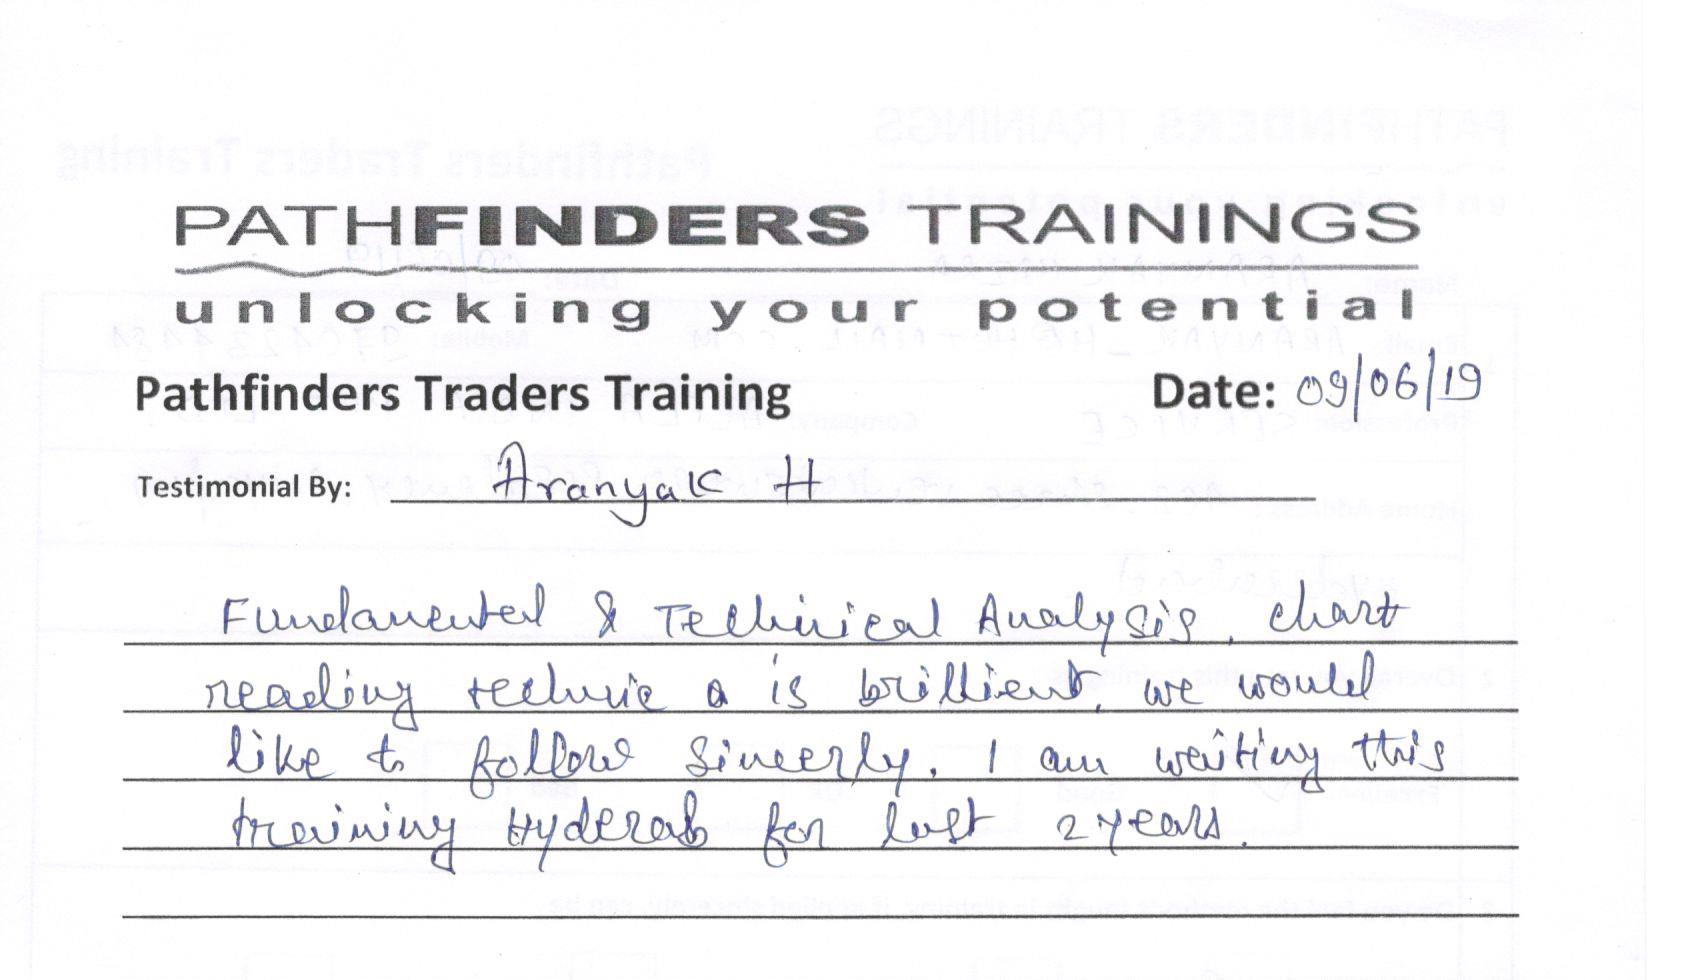 PATHFINDERS TRAININGS
unlocking your potential
Pathfinders Traders Training Date: 09/06/19
Testimonial By: Aranyak H
Fundamental & Technical Analysis, chart
reading technic a is brillient, we would
like to follow sincerly. I am waiting this
training Hyderab for last 2 years.